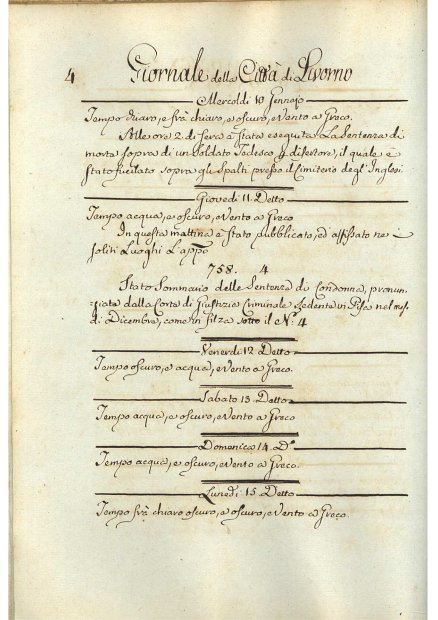 4
Giornale della Città di Livorno
Mercoldì 10 Gennajo
Tempo duaro, e frà chiaro, e oscuro, e Vento a Greco.
Alle ore 2 di sera è stata eseguita La Sentenza di
morte sopra di un Soldato Tedesco p. disertore, il quale è
stato fucilato sopra gli Spalti presso il Cimiterio degl' Inglesi.
Giovedì 11. Detto
Tempo acqua, e oscuro, e Vento a Greco
In questa mattina è stato pubblicato, ed affissato ne i
soliti Luoghi L'app.º
758. 4
Stato Sommario delle Sentenze di Condanna, pronun=
ziate dalla Corte di Giustizia Criminale sedente in Pisa nel mese
di Dicembre, come in filza sotto il N.º 4
Venerdì 12. Detto
Tempo oscuro, e acqua, e Vento a Greco.
Sabato 13. Detto
Tempo acqua, e oscuro, e Vento a Greco
Domenica 14. D.º
Tempo acqua, e oscuro, e Vento a Greco.
Lunedì 15. Detto
Tempo frà chiaro oscuro, e Vento a Greco.